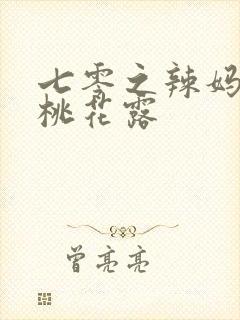 七零之辣妈
桃花露
曾亮亮